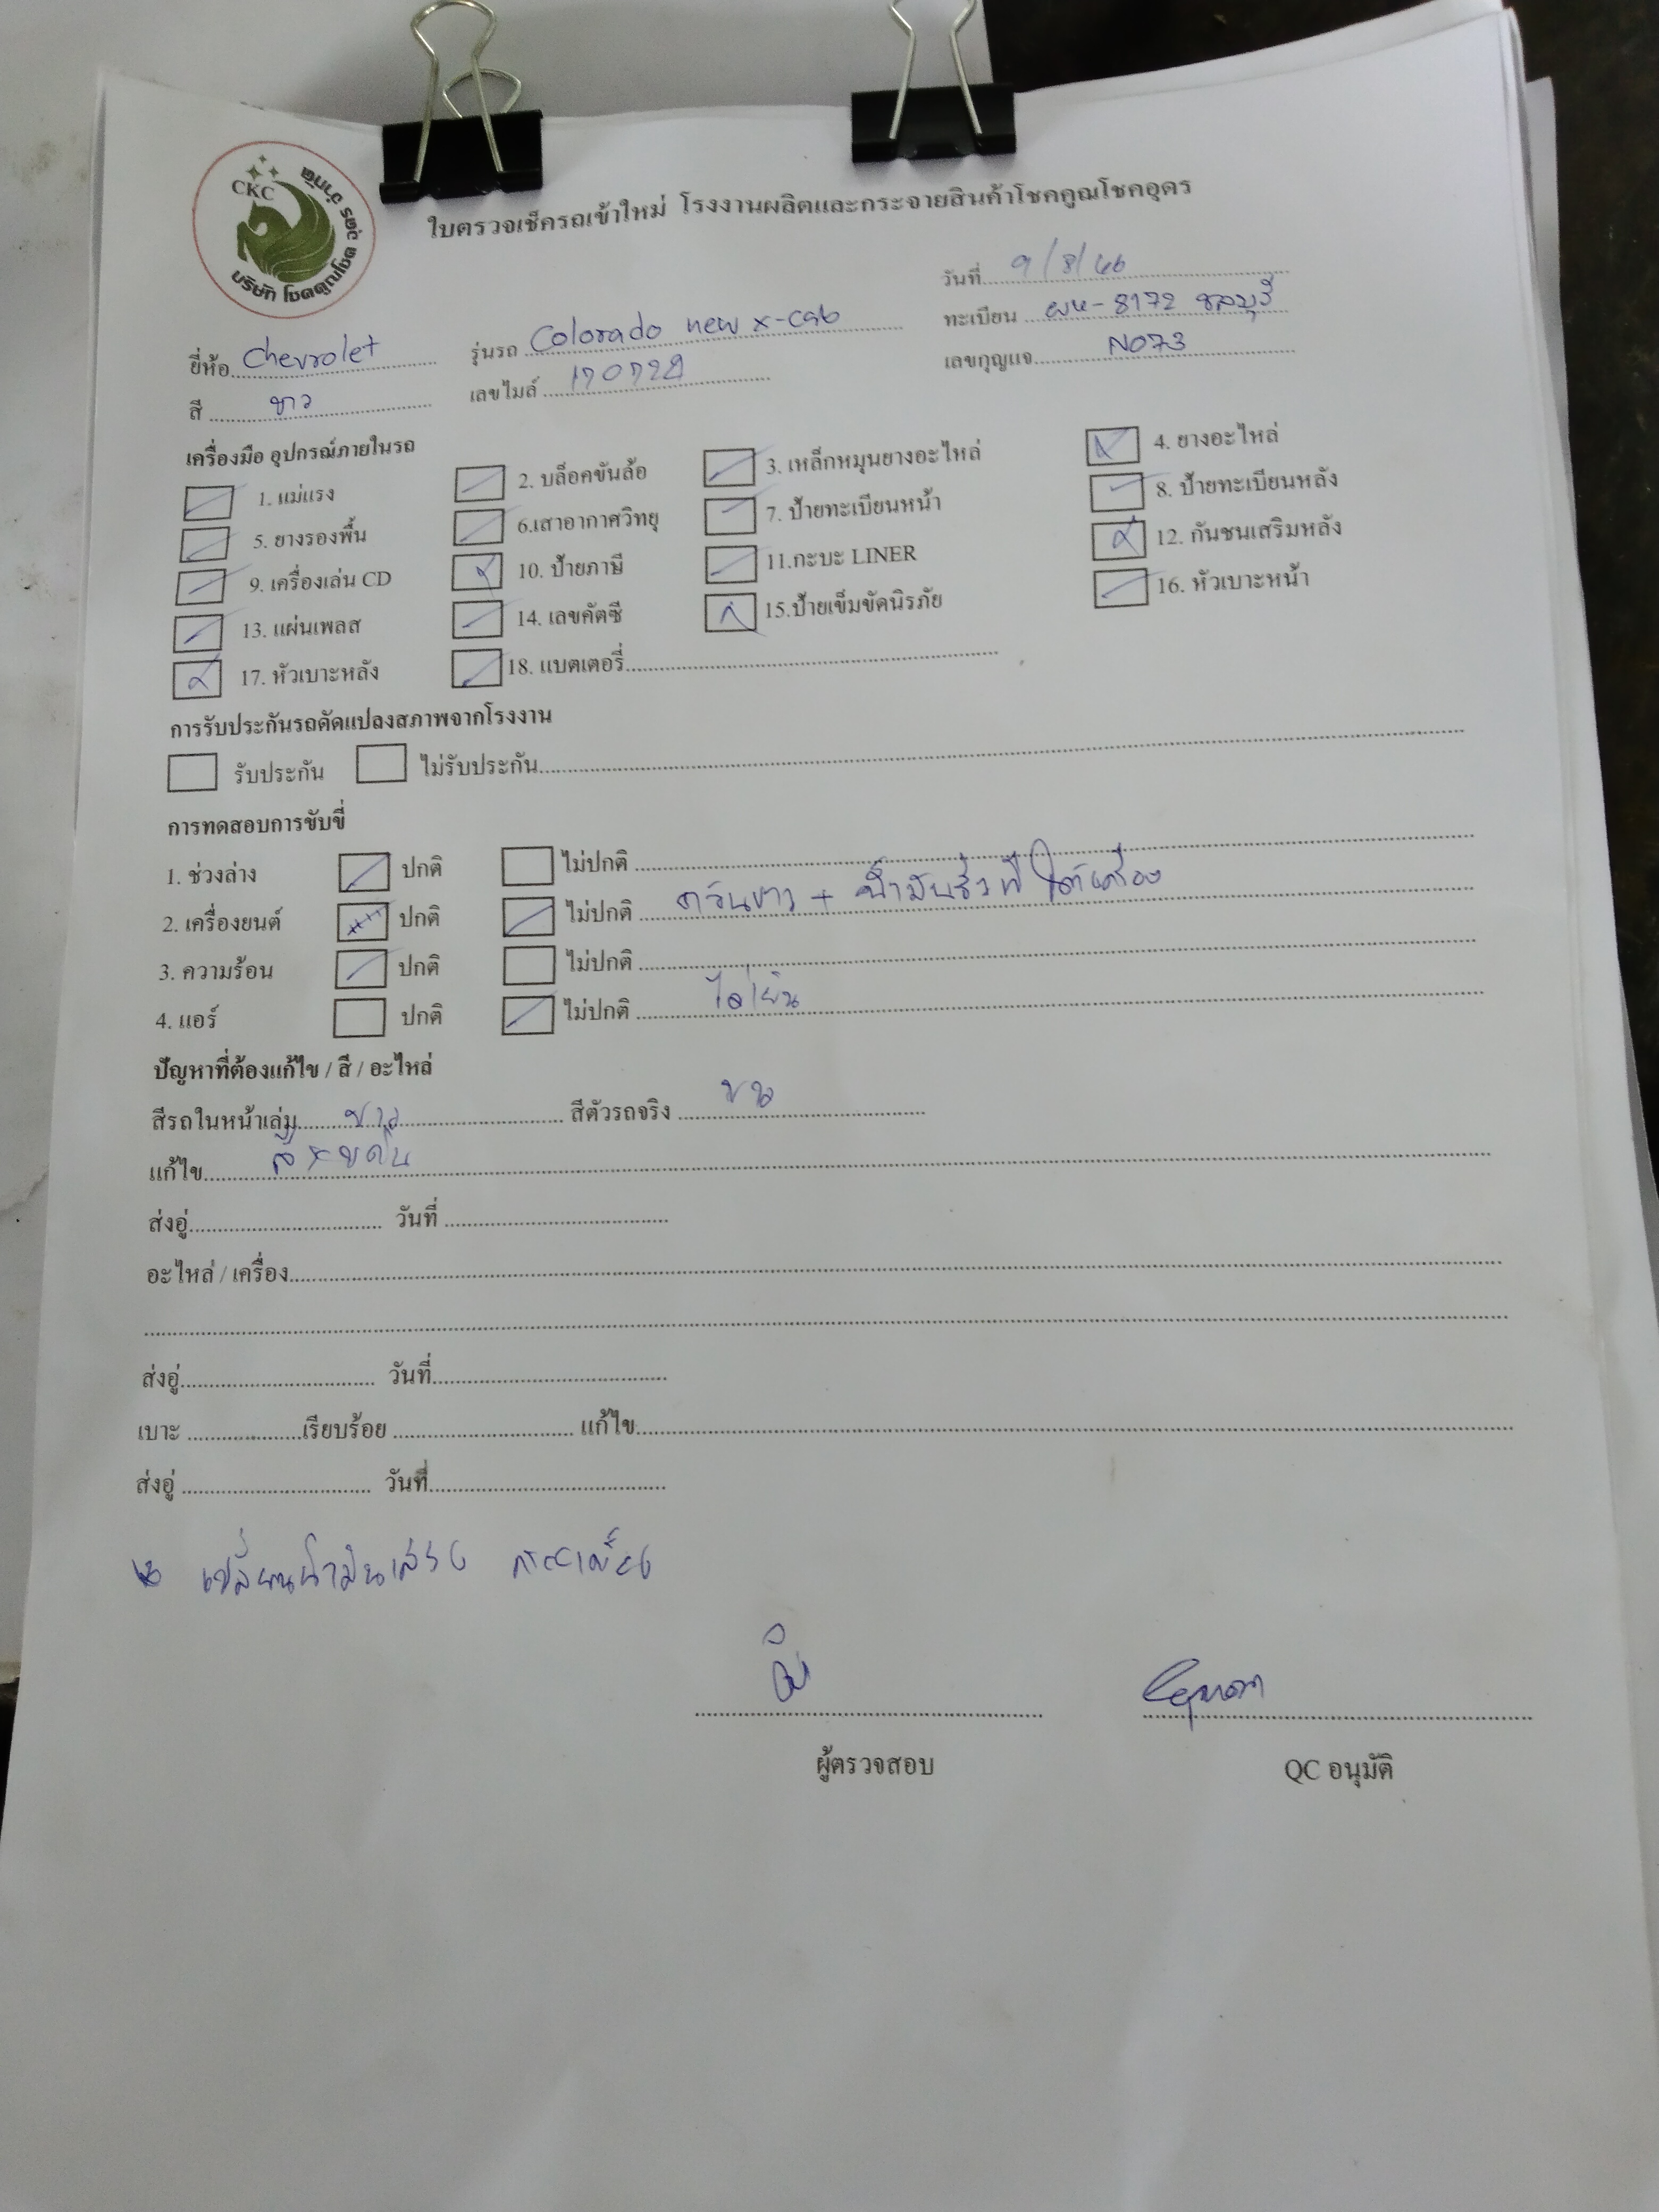 CKC
บริษัท โชคคูณโชค อุดร จำกัด
ใบตรวจเช็ครถเข้าใหม่ โรงงานผลิตและกระจายสินค้าโชคคูณโชคอุดร
วันที่ 9/8/66
ยี่ห้อ Chevrolet รุ่นรถ Colorado new x-cab ทะเบียน ผห-8172 ชลบุรี
สี ขาว เลขไมล์ 170729 เลขกุญแจ N073
เครื่องมือ อุปกรณ์ภายในรถ
1. แม่แรง 2. บล็อคขันล้อ 3. เหล็กหมุนยางอะไหล่ 4. ยางอะไหล่
5. ยางรองพื้น 6.เสาอากาศวิทยุ 7. ป้ายทะเบียนหน้า 8. ป้ายทะเบียนหลัง
9. เครื่องเล่น CD 10. ป้ายภาษี 11.กะบะ LINER 12. กันชนเสริมหลัง
13. แผ่นเพลส 14. เลขคัตซี 15.ป้ายเข็มขัดนิรภัย 16. หัวเบาะหน้า
17. หัวเบาะหลัง 18. แบตเตอรี่
การรับประกันรถดัดแปลงสภาพจากโรงงาน
รับประกัน ไม่รับประกัน
การทดสอบการขับขี่
1. ช่วงล่าง ปกติ ไม่ปกติ
2. เครื่องยนต์ ปกติ ไม่ปกติ ควันขาว + น้ำมันรั่วที่ใต้เครื่อง
3. ความร้อน ปกติ ไม่ปกติ
4. แอร์ ปกติ ไม่ปกติ ไม่เย็น
ปัญหาที่ต้องแก้ไข / สี / อะไหล่
สีรถในหน้าเล่ม ขาว สีตัวรถจริง
แก้ไข
ส่งอู่ วันที่
อะไหล่ / เครื่อง
ส่งอู่ วันที่
เบาะ เรียบร้อย แก้ไข
ส่งอู่ วันที่
เปลี่ยนน้ำมันเครื่อง
ผู้ตรวจสอบ QC อนุมัติ